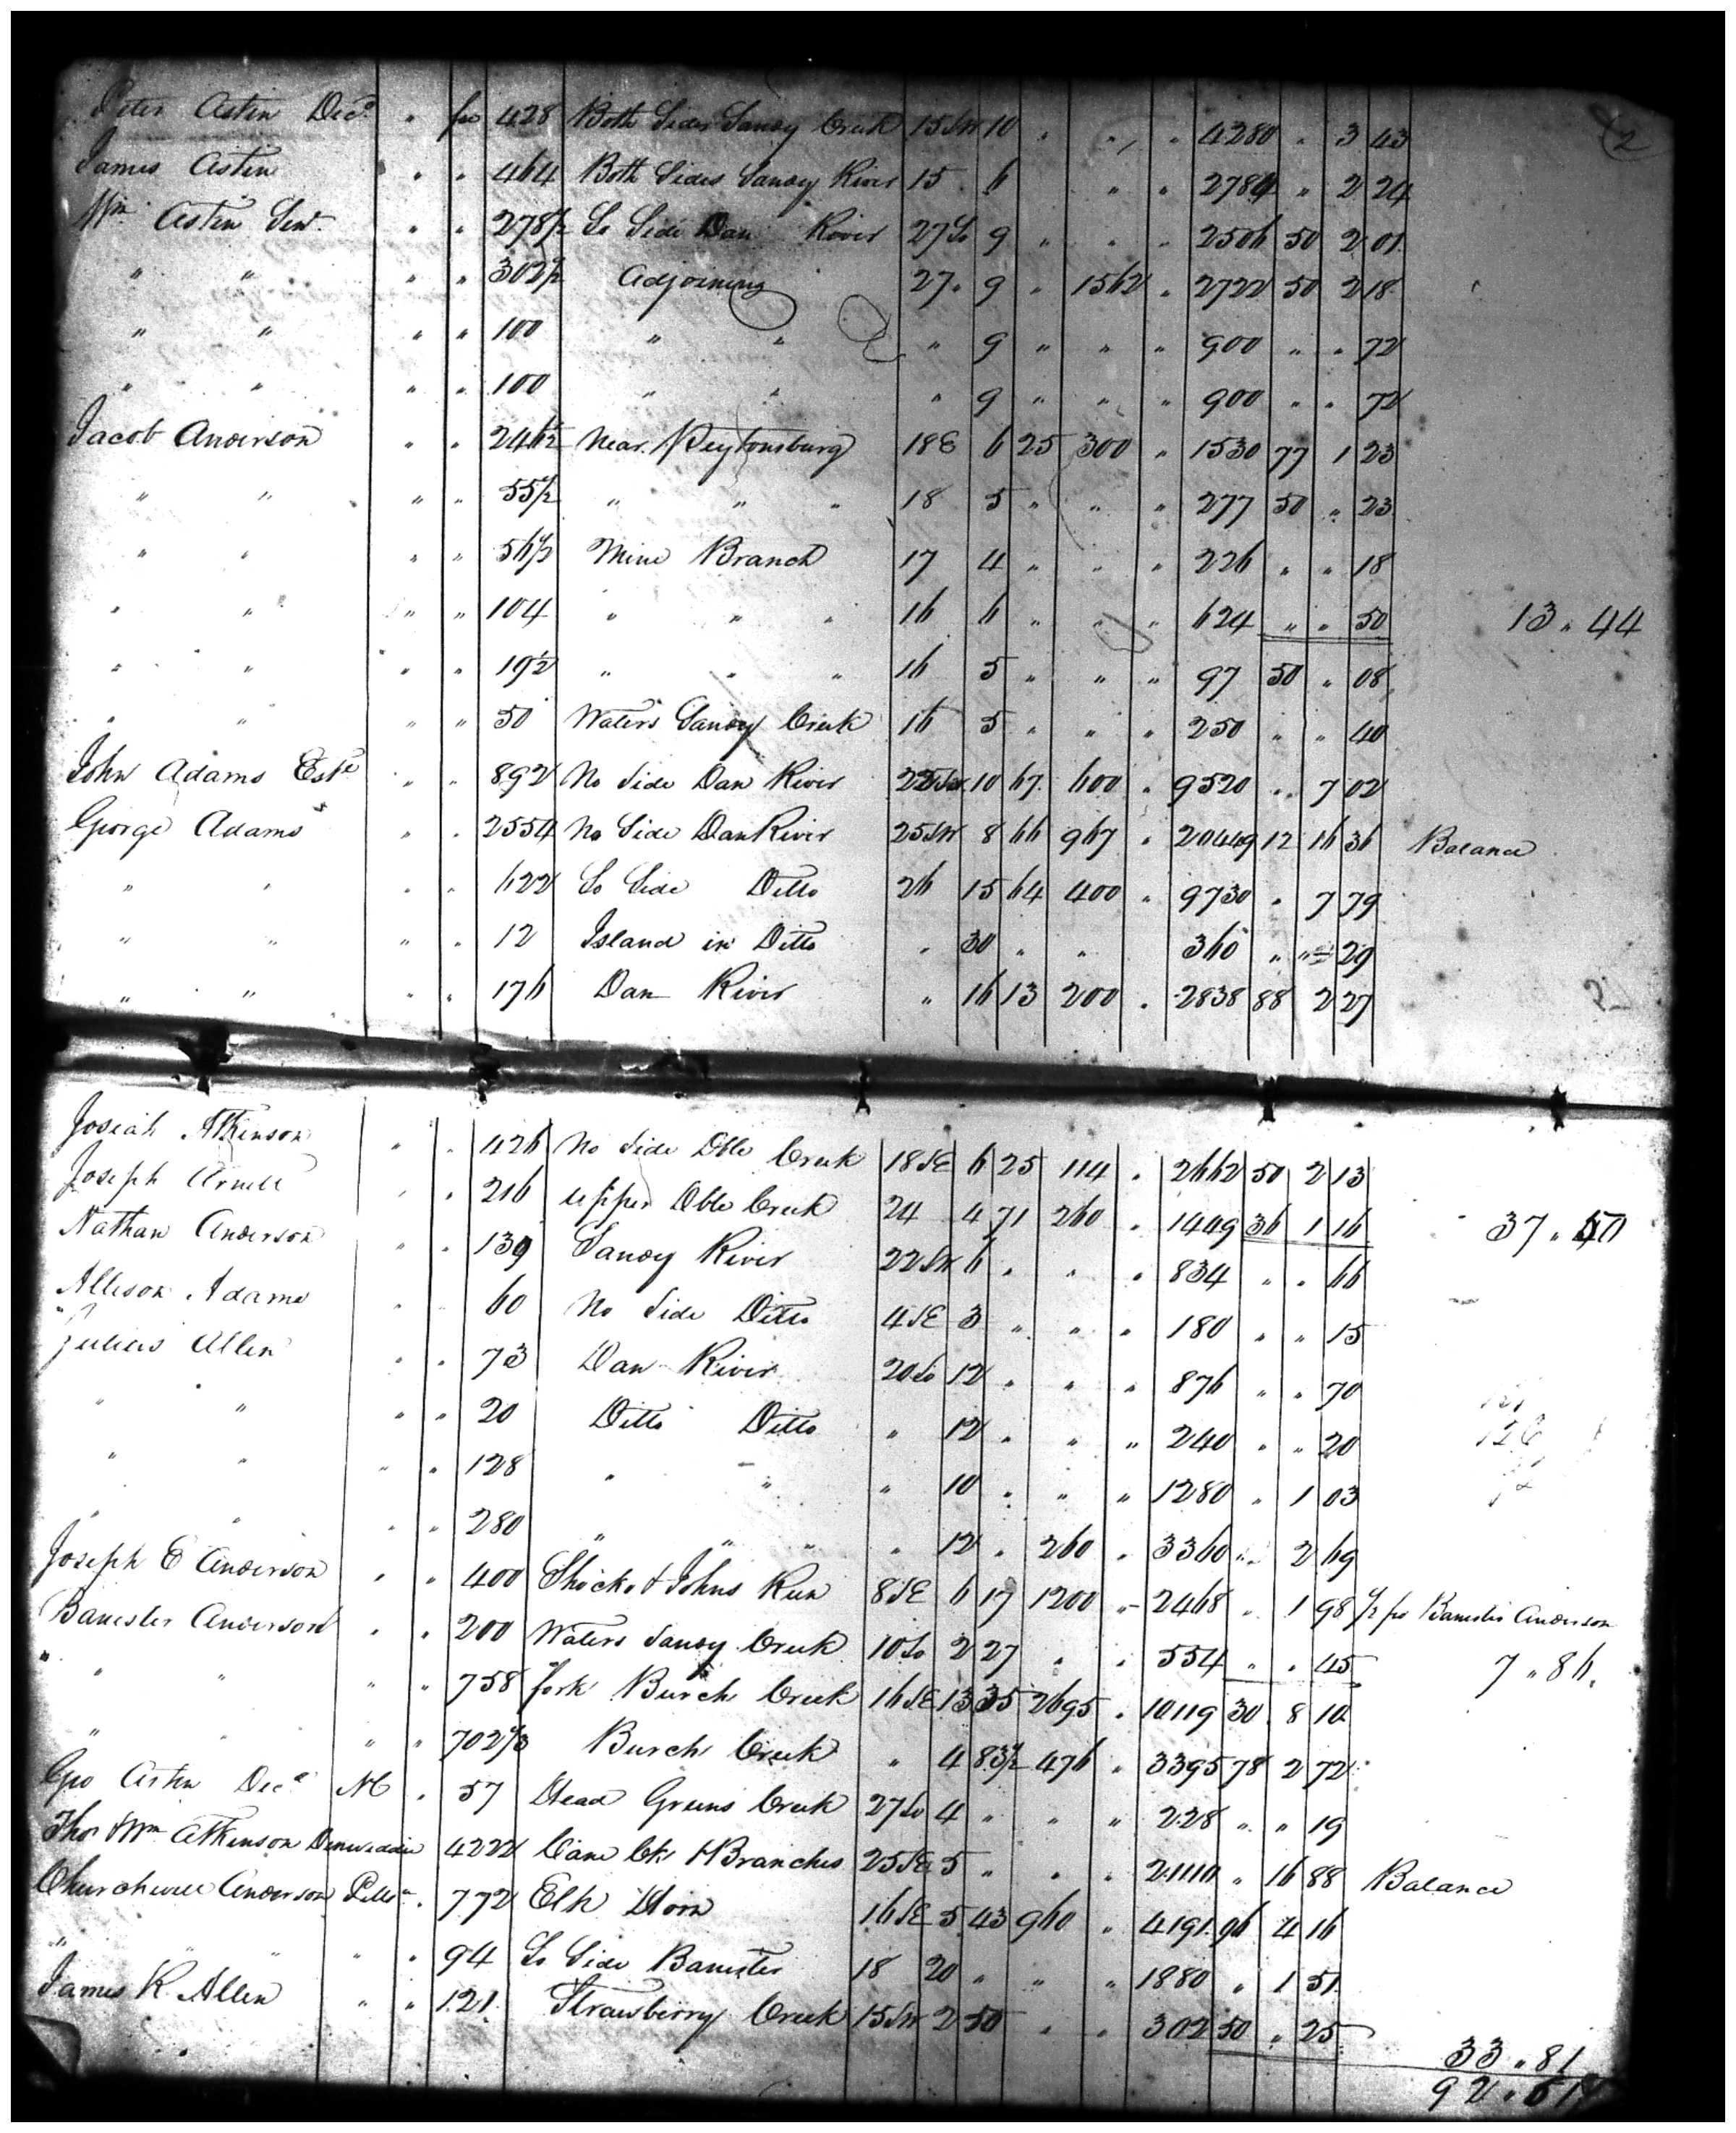 2
Peter Astin Decd " fee 428 Both Sides Sandy Creek 15 SW 10 " " " 4280 " 3 43
James Astin " " 464 Both Sides Sandy River 15 " 6 " " 2784 " 2 24
Wm Astin Senr " " 278½ So Side Dan River 27 So 9 " " " 2506 50 2 01
" " " " 302½ Adjoining 27 " 9 " 1562 " 2722 50 2 18
" " " " 100 " " " 9 " " " 900 " " 72
" " " " 100 " " " 9 " " " 900 " " 72
Jacob Anderson " " 246½ Near Peytonsburg 18 E 6 25 300 " 1530 77 1 23
" " " " 55½ " " " 18 5 " " " 277 50 " 23
" " " " 56½ Mine Branch 17 4 " " " 226 " " 18
" " " " 104 " " " 16 6 " " " 624 " " 50 13 " 44
" " " " 19½ " " " 16 5 " " " 97 50 " 08
" " " " 50 Waters Sandy Creek 16 5 " " " 250 " " 40
John Adams Este " " 892 No Side Dan River 22 SW 10 67 600 " 9520 " 7 02
George Adams " " 2554 No Side Dan River 25 SW 8 66 967 " 20449 12 16 36 Balance
" " " " 622 So Side Ditto 26 15 64 400 " 9730 " 7 79
" " " " 12 Island in Ditto " 30 " " 360 " " 29
" " " " 176 Dan River " 16 13 200 " 2838 88 2 27
Josiah Atkinson " " 426 No Side Dble Creek 18 SE 6 25 114 " 2662 50 2 13
Joseph Arnett " " 216 Upper Dble Creek 24 4 71 260 " 1449 36 1 16 37 " 50
Nathan Anderson " " 139 Sandy River 22 SW 6 " " " 834 " " 66
Allison Adams " " 60 No Side Ditto 4 SE 3 " " " 180 " " 15
Julius Allen " " 73 Dan River 20 So 12 " " " 876 " " 70
" " " " 20 Ditto Ditto " 12 " " " 240 " " 20
" " " " 128 " " " 10 " " " 1280 " 1 03
" " " " 280 " " " " 12 " 260 " 3360 " 2 69
Joseph E Anderson " " 400 Shocko & Johns Run 8 SE 6 17 1200 " 2468 " 1 98 ½ fee Banister Anderson
Banister Anderson " " 200 Waters Sandy Creek 10 So 2 27 " " 554 " " 45 7 " 86
" " " " 758 fork Burch Creek 16 SE 13 35 2695 " 10119 30 8 10
" " " " 702⅓ Burch Creek " 4 83½ 476 " 3395 78 2 72
Geo Astin Decd NC " 57 Head Greens Creek 27 So 4 " " " 228 " " 19
Thos & Wm Atkinson Dinwiddie 4222 Cane Ck & Branches 25 SE 5 " " " 21110 " 16 88 Balance
Churchwell Anderson Pitta " 772 Elk Horn 16 SE 5 43 960 " 4191 96 4 16
" " " " 94 So Side Banister 18 20 " " " 1880 " 1 51
James R Allen " " 121 Strawberry Creek 15 SW 2 50 " " 302 50 " 25
33 " 81